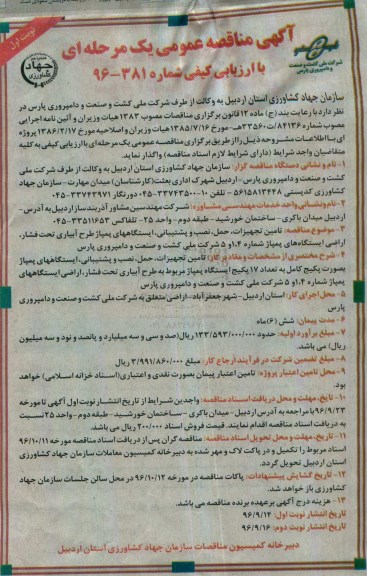 نوبت اول
آگهی مناقصه عمومی یک مرحله ای
با ارزیابی کیفی شماره ۳۸۱-۹۶
جهاد
کشاورزی
شرکت ملی کشت و صنعت
و دامپروری پارس
سازمان جهاد کشاورزی استان اردبیل به وکالت از طرف شرکت ملی کشت و صنعت و دامپروری پارس در
نظر دارد با رعایت بند (ج) ماده ۱۲ قانون برگزاری مناقصات مصوب ۱۳۸۳ هیات وزیران و آئین نامه اجرایی
مصوب شماره ۸۴۱۳۶/ت۳۳۵۶۰هـ مورخ ۱۳۸۵/۷/۱۶ هیات وزیران و اصلاحیه مورخ ۱۳۸۶/۲/۱۷ پروژه
ای با اطلاعات مشروحه ذیل را از طریق برگزاری مناقصه عمومی یک مرحله ای با ارزیابی کیفی به کلیه
متقاضیان واجد شرایط (دارای شرایط لازم اسناد مناقصه) واگذار نماید.
۱- نام و نشانی دستگاه مناقصه گزار: سازمان جهاد کشاورزی استان اردبیل به وکالت از طرف شرکت ملی
کشت و صنعت و دامپروری پارس- اردبیل شهرک اداری بعثت (کارشناسان) میدان مهارت- سازمان جهاد
کشاورزی کدپستی ۵۶۱۵۸۱۳۴۴۸ - تلفن ۱۰-۳۳۷۴۳۵۰۰-۰۴۵ دورنگار ۳۳۷۴۳۹۷۱-۰۴۵
۲- نام و نشانی واحد خدمات مهندسی مشاوره: شرکت مهندسین مشاور آذربندساز اردبیل به آدرس-
اردبیل میدان باکری - ساختمان خورشید- طبقه دوم- واحد ۲۵- تلفاکس ۳۳۵۱۱۶۵۳-۰۴۵
۳- موضوع مناقصه: تامین تجهیزات، حمل، نصب و پشتیبانی، ایستگاههای پمپاژ طرح آبیاری تحت فشار،
اراضی ایستگاه های پمپاژ شماره ۱،۴ و ۵ شرکت ملی کشت و صنعت و دامپروری پارس
۴- شرح مختصری از مشخصات و مقادیر کار: تامین تجهیزات، حمل، نصب و پشتیبانی، ایستگاههای پمپاژ
بصورت پکیج کامل به تعداد ۱۷ پکیج ایستگاه پمپاژ مربوط به طرح آبیاری تحت فشار، اراضی ایستگاههای
پمپاژ شماره ۱،۴ و ۵ شرکت ملی کشت و صنعت و دامپروری پارس
۵- محل اجرای کار: استان اردبیل- شهر جعفرآباد- اراضی متعلق به شرکت ملی کشت و صنعت و دامپروری
پارس
۶- مدت پیمان: شش (۶) ماه
۷- مبلغ برآورد اولیه: حدود ۱۳۳/۵۹۳/۰۰۰/۰۰۰ ریال (صد و سی و سه میلیارد و پانصد و نود و سه میلیون
ریال) می باشد.
۸- مبلغ تضمین شرکت در فرآیند ارجاع کار: مبلغ ۳/۹۹۱/۸۶۰/۰۰۰ ریال
۹- محل تامین اعتبار پروژه: تامین اعتبار پیمان بصورت نقدی و اعتباری (اسناد خزانه اسلامی) خواهد
بود.
۱۰- تاریخ، مهلت و محل دریافت اسناد مناقصه: واجدین شرایط از تاریخ انتشار نوبت اول آگهی تا مورخه
۹۶/۹/۲۳ با مراجعه به آدرس اردبیل- میدان باکری - ساختمان خورشید- طبقه دوم- واحد ۲۵ نسبت
به دریافت اسناد مناقصه اقدام نمایند. قیمت فروش اسناد ۲۰۰/۰۰۰ ریال می باشد.
۱۱- تاریخ، مهلت و محل تحویل اسناد مناقصه: مناقصه گران پس از دریافت اسناد مناقصه مورخه ۹۶/۱۰/۱۱
اسناد مربوط را تکمیل و در پاکت لاک و مهر شده به دبیرخانه کمیسیون معاملات سازمان جهاد کشاورزی
استان اردبیل تحویل گردد.
۱۲- تاریخ گشایش پیشنهادات: پاکات مناقصه در مورخه ۹۶/۱۰/۱۲ در محل سالن جلسات سازمان جهاد
کشاورزی باز خواهد شد.
۱۳- هزینه درج آگهی بر عهده برنده مناقصه می باشد.
تاریخ انتشار نوبت اول: ۹۶/۹/۱۴
تاریخ انتشار نوبت دوم: ۹۶/۹/۱۶
دبیرخانه کمیسیون مناقصات سازمان جهاد کشاورزی استان اردبیل